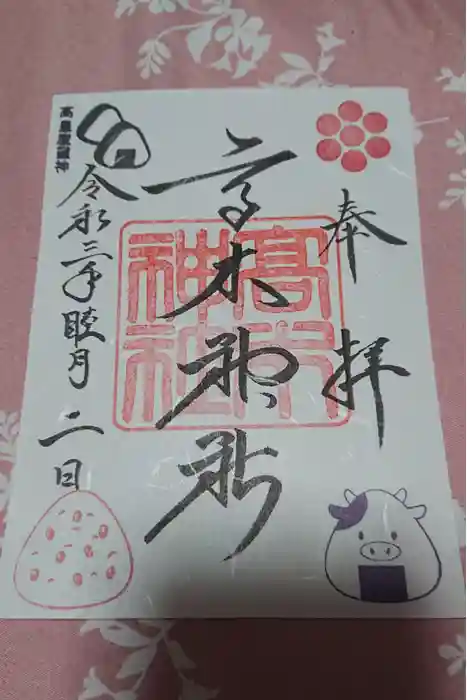 奉拝
高木神社
高木神社
令和三年睦月二日
高皇産靈神